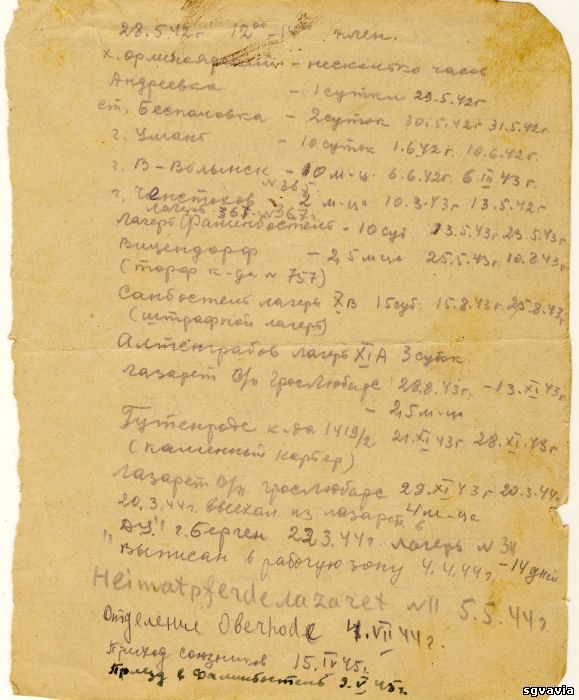 28.5.42г 12⁰⁰ – плен.
х. – несколько часов
Андреевка – 1 сутки 29.5.42г
ст. Беспаловка – 2 суток 30.5.42г 31.5.42г
г. Умань – 10 суток 1.6.42г. 10.6.42г.
г. В-Волынск – 10 м-ц. 6.6.42г. 6.III.43г.
N 365
г. Ченстохов 2 м-ца 10.3.43г 13.5.42г
лагерь 367 N367.
Лагерь Фалинбостель – 10 сут 13.5.43г 23.5.43г
Вицендорф – 2,5 м-ца 25.5.43г 10.8.43г
(торф к-да N 757)
Санбостель лагерь X В 15 сут. 15.8.43г 25.8.43г
(штрафной лагерь)
Алтенграбов лагерь XI А 3 суток
Лазарет В/п Гросс-Любарс 28.8.43г. – 13.XI.43г.
– 2,5 м-ца
Гутенроде к-да 1419/2 21.XI.43г. 28.XI.43г.
(каменный карьер)
Лазарет В/п Гросс-Любарс 29.XI.43г 20.3.44г
20.3.44г. выехал из лазарета в 4 м-ца
г. Берген 22.3.44г. лагерь N 311
"Выписан в рабочую зону 4.4.44г. – 14 дней
Heimatpferdeлаzaret N11 5.5.44г
Отделение Oberhode 4.VII 44г.
Приход союзников 15.IV 45г.
Приезд в Фалинбостель 9.V 45г.
sgvavia